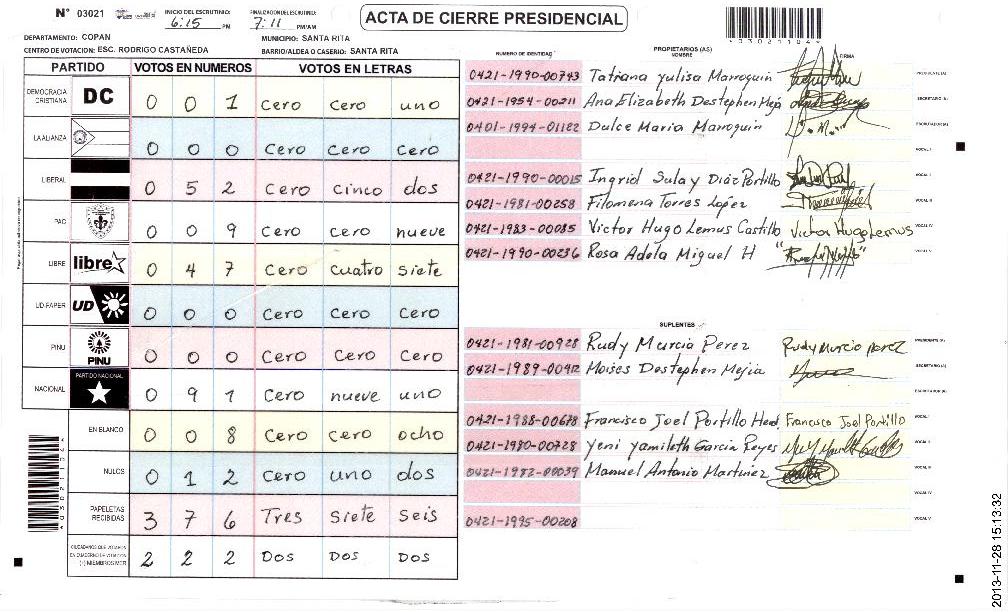 N° 03021
INICIO DEL ESCRUTINIO: 6:15 PM
FINALIZACION DEL ESCRUTINIO: 7:11 PM/AM
ACTA DE CIERRE PRESIDENCIAL
DEPARTAMENTO: COPAN
MUNICIPIO: SANTA RITA
CENTRO DE VOTACION: ESC. RODRIGO CASTAÑEDA
BARRIO/ALDEA O CASERIO: SANTA RITA
PARTIDO VOTOS EN NUMEROS VOTOS EN LETRAS
DEMOCRACIA CRISTIANA DC 0 0 1 Cero Cero uno
LA ALIANZA 0 0 0 Cero Cero Cero
LIBERAL 0 5 2 Cero cinco dos
PAC 0 0 9 Cero cero nueve
LIBRE libre 0 4 7 Cero cuatro siete
UD-FAPER UD 0 0 0 Cero Cero Cero
PINU PINU 0 0 0 Cero Cero Cero
NACIONAL PARTIDO NACIONAL 0 9 1 Cero nueve uno
EN BLANCO 0 0 8 Cero cero ocho
NULOS 0 1 2 Cero uno dos
PAPELETAS RECIBIDAS 3 7 6 Tres Siete Seis
CIUDADANOS QUE VOTARON EN CUADERNO DE VOTACION (+) MIEMBROS MER 2 2 2 Dos Dos Dos
PROPIETARIOS (AS)
NUMERO DE IDENTIDAD NOMBRE FIRMA
0421-1990-00743 Tatiana yulisa Marroquin PRESIDENTE (A)
0421-1954-00211 Ana Elizabeth Destephen Mejia SECRETARIO (A)
0401-1994-01122 Dulce Maria Marroquin ESCRUTADOR (A)
VOCAL I
0421-1990-00015 Ingrid Sulay Diáz Portillo VOCAL II
0421-1981-00258 Filomena Torres López VOCAL III
0421-1983-00085 Victor Hugo Lemus Castillo Victor Hugo Lemus VOCAL IV
0421-1990-00236 Rosa Adela Miguel H VOCAL V
SUPLENTES
0421-1981-00928 Rudy Murcia Perez Rudy Murcia Perez PRESIDENTE (A)
0421-1989-00412 Moises Destephen Mejia SECRETARIO (A)
ESCRUTADOR (A)
0421-1988-00678 Francisco Joel Portillo Herd Francisco Joel Portillo VOCAL I
0421-1980-00728 yeni yamileth Garcia Reyes VOCAL II
0421-1982-00039 Manuel Antonio Martinez VOCAL III
VOCAL IV
0421-1995-00208 VOCAL V
2013-11-28 15:13:32